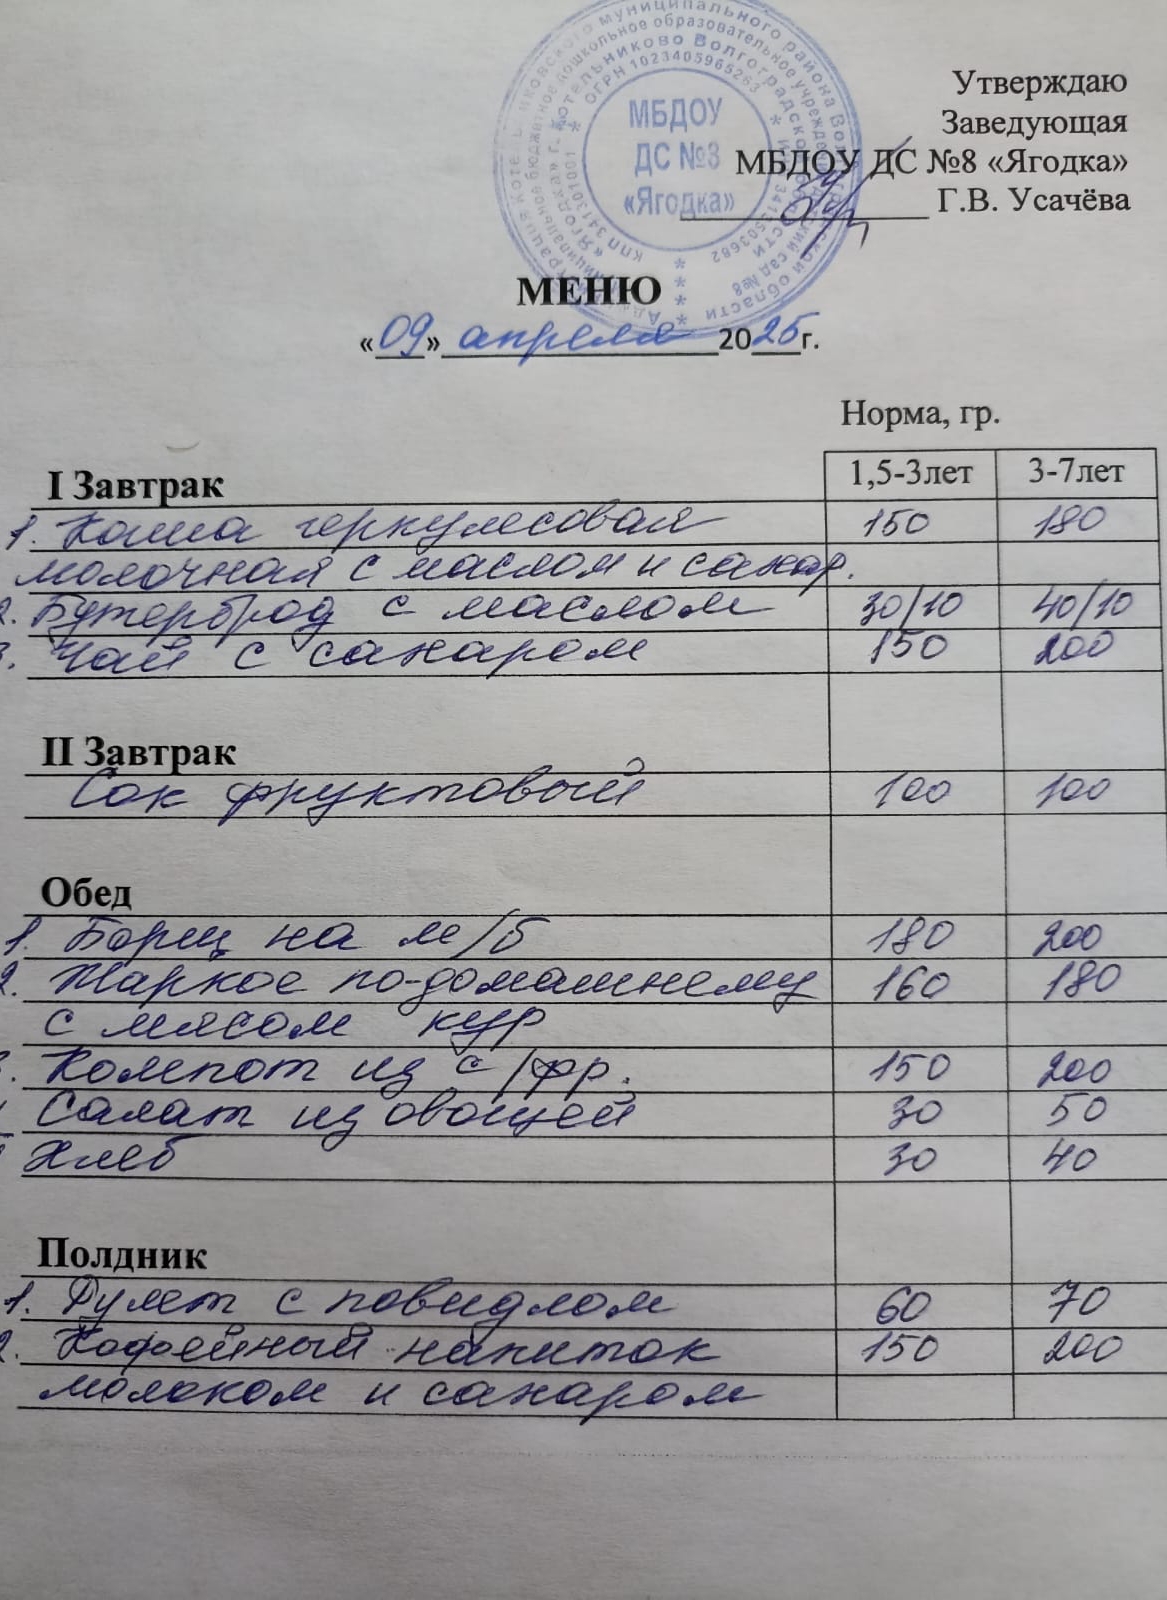 МБДОУ
ДС №8
«Ягодка»
ОГРН 1023405965263
КПП 341301001
Утверждаю
Заведующая
МБДОУ ДС №8 «Ягодка»
Г.В. Усачёва
МЕНЮ
«09» апреля 2025г.
Норма, гр.
I Завтрак 1,5-3лет 3-7лет
1. Каша геркулесовая 150 180
молочная с маслом и сахар.
2. Бутерброд с маслом 30/10 40/10
3. Чай с сахаром 150 200
II Завтрак
Сок фруктовый 100 100
Обед
1. Борщ на м/б 180 200
2. Жаркое по-домашнему 160 180
с мясом кур
3. Компот из с/фр. 150 200
Салат из овощей 30 50
Хлеб 30 40
Полдник
1. Рулет с повидлом 60 70
2. Кофейный напиток 150 200
молоком и сахаром